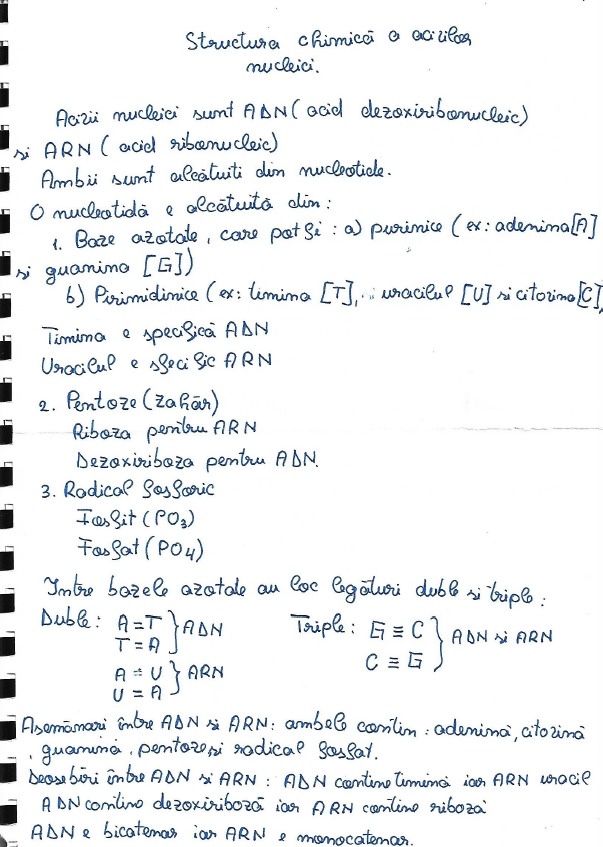 Structura chimică a acizilor
nucleici.
Acizii nucleici sunt ADN (acid dezoxiribonucleic)
si ARN (acid ribonucleic)
Ambii sunt alcătuiti din nucleotide.
O nucleotidă e alcătuită din:
1. Baze azotate, care pot fi: a) purinice (ex: adenina [A]
si guanina [G])
b) Pirimidinice (ex: timina [T], uracilul [U] si citozina [C],
Timina e specifică ADN
Uracilul e specific ARN
2. Pentoze (zahăr)
Riboza pentru ARN
Dezoxiriboza pentru ADN.
3. Radical fosforic
Fosfit (PO3)
Fosfat (PO4)
Intre bazele azotate au loc legături duble si triple:
Duble: A = T } ADN Triple: G ≡ C } ADN si ARN
T = A C ≡ G
A = U } ARN
U = A
Asemănari între ADN si ARN: ambele contin: adenină, citozină
, guanină, pentoze si radical fosfat.
Deosebiri între ADN si ARN: ADN contine timină iar ARN uracil
ADN contine dezoxiriboză iar ARN contine riboză
ADN e bicatenar iar ARN e monocatenar.